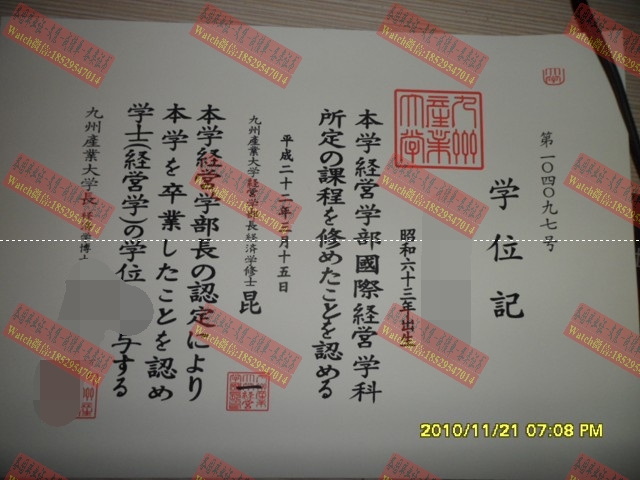 学位記
第一〇四〇九七号
九州産業大学
昭和六十三年出生
本学経営学部國際経営学科
所定の課程を修めたことを認める
平成二十二年三月十五日
九州産業大学経営学部長経済学修士 昆
本学経営学部長の認定により
本学を卒業したことを認め
学士(経営学)の学位 与する
九州産業大学長
2010/11/21 07:08 PM
Watch微信:18529547014